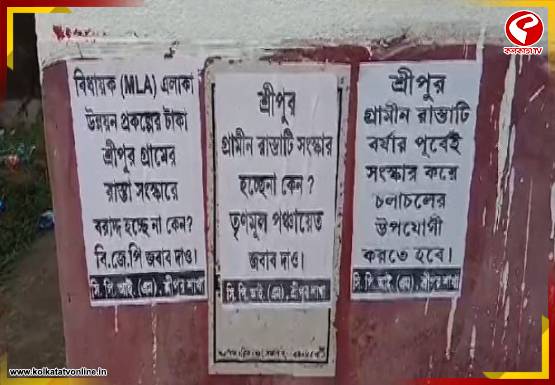 কলকাতা TV
বিধায়ক (MLA) এলাকা
উন্নয়ন প্রকল্পের টাকা
শ্রীপুর গ্রামের
রাস্তা সংস্কারে
বরাদ্দ হচ্ছে না কেন?
বি.জে.পি জবাব দাও।
সি. পি. আই. (এম). শ্রীপুর শাখা
শ্রীপুর
গ্রামীন রাস্তাটি সংস্কার
হচ্ছেনা কেন ?
তৃণমূল পঞ্চায়েত
জবাব দাও।
সি. পি. আই. (এম). শ্রীপুর শাখা
শ্রীপুর
গ্রামীন রাস্তাটি
বর্ষার পূর্বেই
সংস্কার করে
চলাচলের
উপযোগী
করতে হবে।
সি. পি. আই. (এম). শ্রীপুর শাখা
www.kolkatatvonline.in